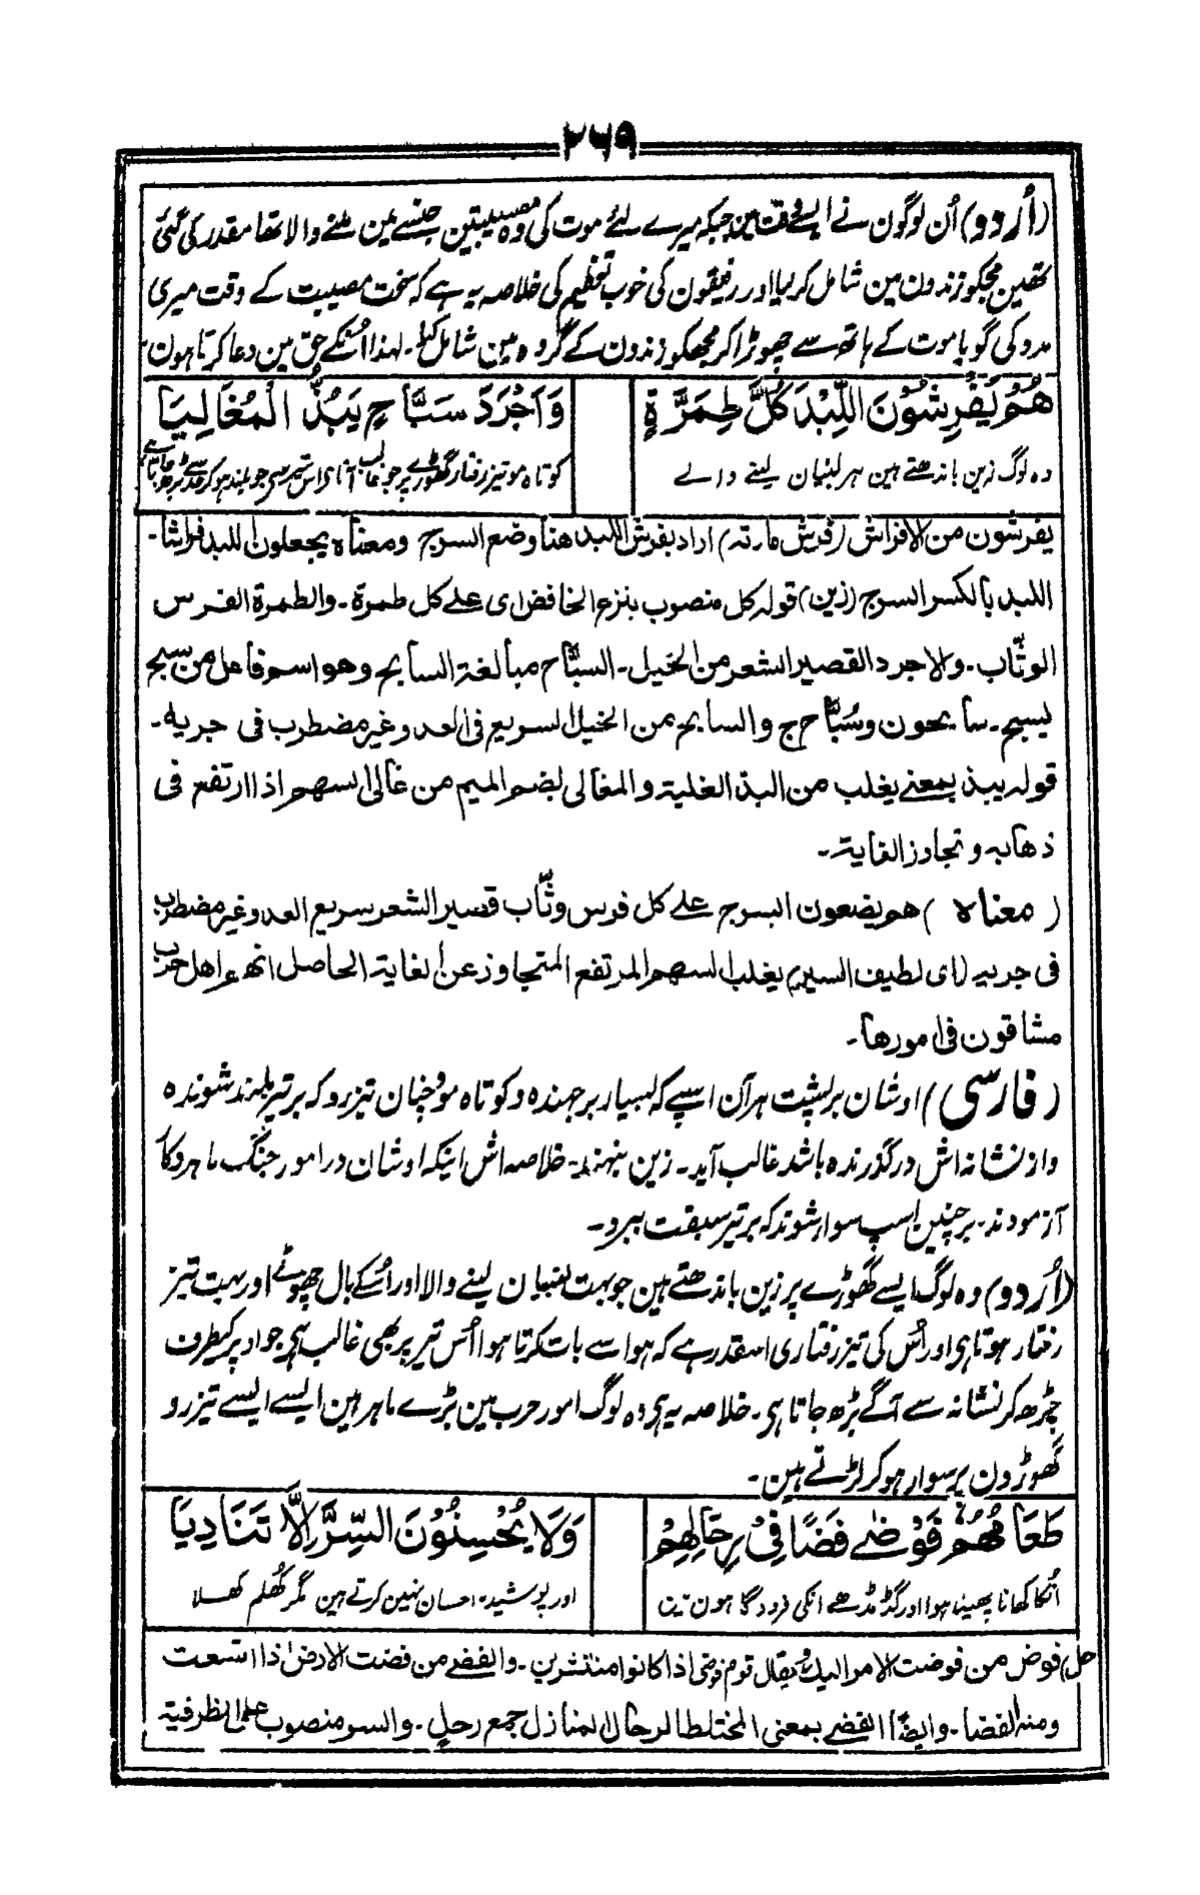 ۲۶۹
(اُردو) اُن لوگون نے ایسے وقت مین جبکہ میرے لئے موت کی وہ مصیبتین جنسے مین ملنے والا تھا مقدر کی گئی
تھین مجکو زندون مین شامل کر لیا اور رفیقون کی خوب تعظیم کی خلاصہ یہ ہے کہ سخت مصیبت کے وقت میری
مدد کی گویا موت کے ہاتھ سے چھوڑا کر مجھکو زندون کے گروہ مین شامل کیا۔ لہذا اُنکے حق مین دعا کرتا ہون
هُمُ يَفْرِشُوْنَ اللِّبْدَ كُلَّ طِمِرَّةٍ وَاَجْرَدَ سَبَّاحٍ يَبُذُّ الْمُغَالِيَا
وہ لوگ زین باندھتے ہین ہر لنبیان لینے والے کوتاہ مو تیز رفتار گھوڑے پر جو غالب آتا ہی اس تیر سے جو بلند ہو کر حد سے بڑھ جاتا ہے
يفرشون من الافراش (فرش مارته) اراد بفرش اللبد هنا وضع السرج ومعناه يجعلون اللبد فراشا۔
اللبد بالكسر السرج (زین) قوله كل منصوب بنزع الخافض اى على كل طمرة۔ والطمرة الفرس
الوثّاب۔ والاجرد القصير الشعر من الخيل۔ السبّاح مبالغة السابح وهو اسم فاعل من سبح
يسبح۔ سابحون وسُبَّاح ج والسابح من الخيل السريع فى العدو غير مضطرب فى جريه۔
قوله يبذ بمعنے يغلب من البذ الغلبة والمغالى بضم الميم من غالى السهم اذا ارتفع فى
ذهابه وتجاوز الغاية۔
(معناه) هم يضعون السرج على كل فرس وثّاب قصير الشعر سريع العدو غير مضطرب
فى جريه (اى لطيف السير) يغلب السهم المرتفع المتجاوز عن الغاية الحاصل انهم اهل حرب
مشاقون فى امورها۔
(فارسی) اوشان بر پشت ہر آن اسپے کہ بسیار برجہندہ و کوتاہ مو چنان تیز رو کہ بر تیر بلند شوندہ
و از نشانہ اش در گذرندہ باشد غالب آید۔ زین بنہند۔ خلاصہ اش اینکہ اوشان در امور جنگ ماہر و کار
آزمودند۔ بر چنین اسپ سوار شوند کہ بر تیر سبقت ببرد۔
(اُردو) وہ لوگ ایسے گھوڑے پر زین باندھتے ہین جو بہت لنبیان لینے والا اور اُسکے بال چھوٹے اور بہت تیز
رفتار ہوتا ہی اور اُس کی تیز رفتاری اسقدر ہے کہ ہوا سے بات کرتا ہوا اُس تیر پر بھی غالب ہی جو اوپر کیطرف
چڑھ کر نشانہ سے آگے بڑھ جاتا ہی۔ خلاصہ یہ ہی وہ لوگ امور حرب مین بڑے ماہر ہین ایسے ایسے تیز رو
گھوڑون پر سوار ہو کر لڑتے ہین۔
طَعَامُهُمُ فَوْضٰے فَضًا فِيْ رِحَالِهِمْ وَلَا يُحْسِنُوْنَ السِّرَّ اِلَّا تَنَادِيَا
اُنکا کھانا پھیلا ہوا اور گڈ مڈ ھے انکی فرودگاہون مین اور پوشیدہ احسان نہین کرتے ہین مگر کھُلم کھلا
(حل) فوض من فوضت الامر اليك ويقال قوم فوضى اذا كانوا منتشرين۔ والفضے من فضت الارض اذا اتسعت
ومنه الفضا۔ وايضًا الفضے بمعنى المختلط الرحال المنازل جمع رحل۔ والسر منصوب على الظرفية